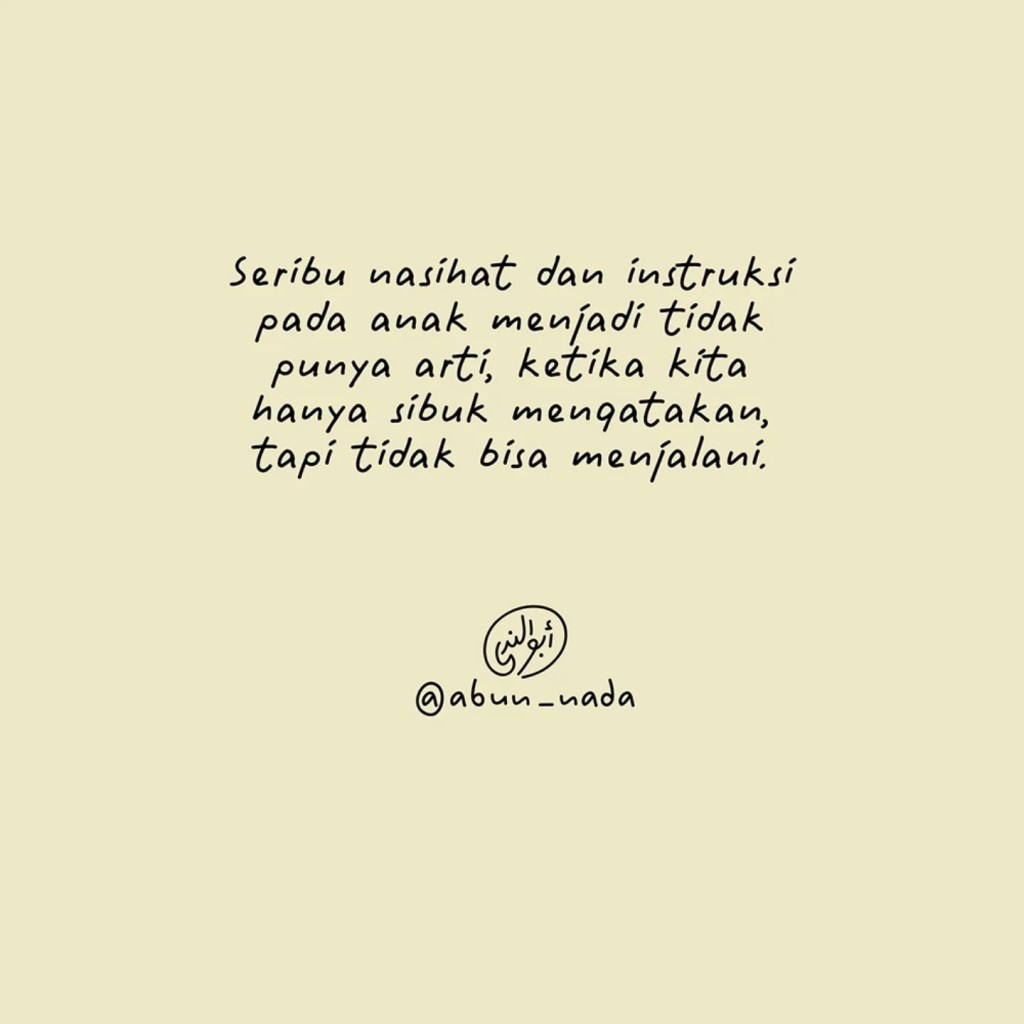 Seribu nasihat dan instruksi
pada anak menjadi tidak
punya arti, ketika kita
hanya sibuk mengatakan,
tapi tidak bisa menjalani.
أبو الندى
@abun_nada